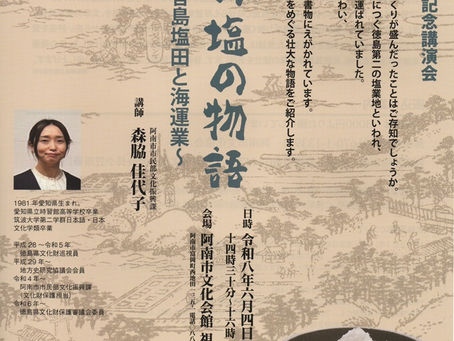 記念講演会
くりが盛んだったことはご存知でしょうか。
につぐ徳島第二の塩業地といわれ、
運ばれていました。
わい、
書物にえがかれています。
をめぐる壮大な物語をご紹介します。
塩の物語
島塩田と海運業～
講師
阿南市市民部文化振興課
森脇 佳代子
1981年愛知県生まれ。
愛知県立時習館高等学校卒業
筑波大学第二学群日本語・日本
文化学類卒業
平成28～令和5年
徳島県文化財巡視員
平成29年～
地方史研究協議会会員
令和4年～
阿南市市民部文化振興課
(文化財保護担当)
令和6年～
徳島県文化財保護審議会委員
日時 令和八年六月四日
十四時三十分～十六時
会場 阿南市文化会館 視
阿南市富岡町西池田一三五 電話